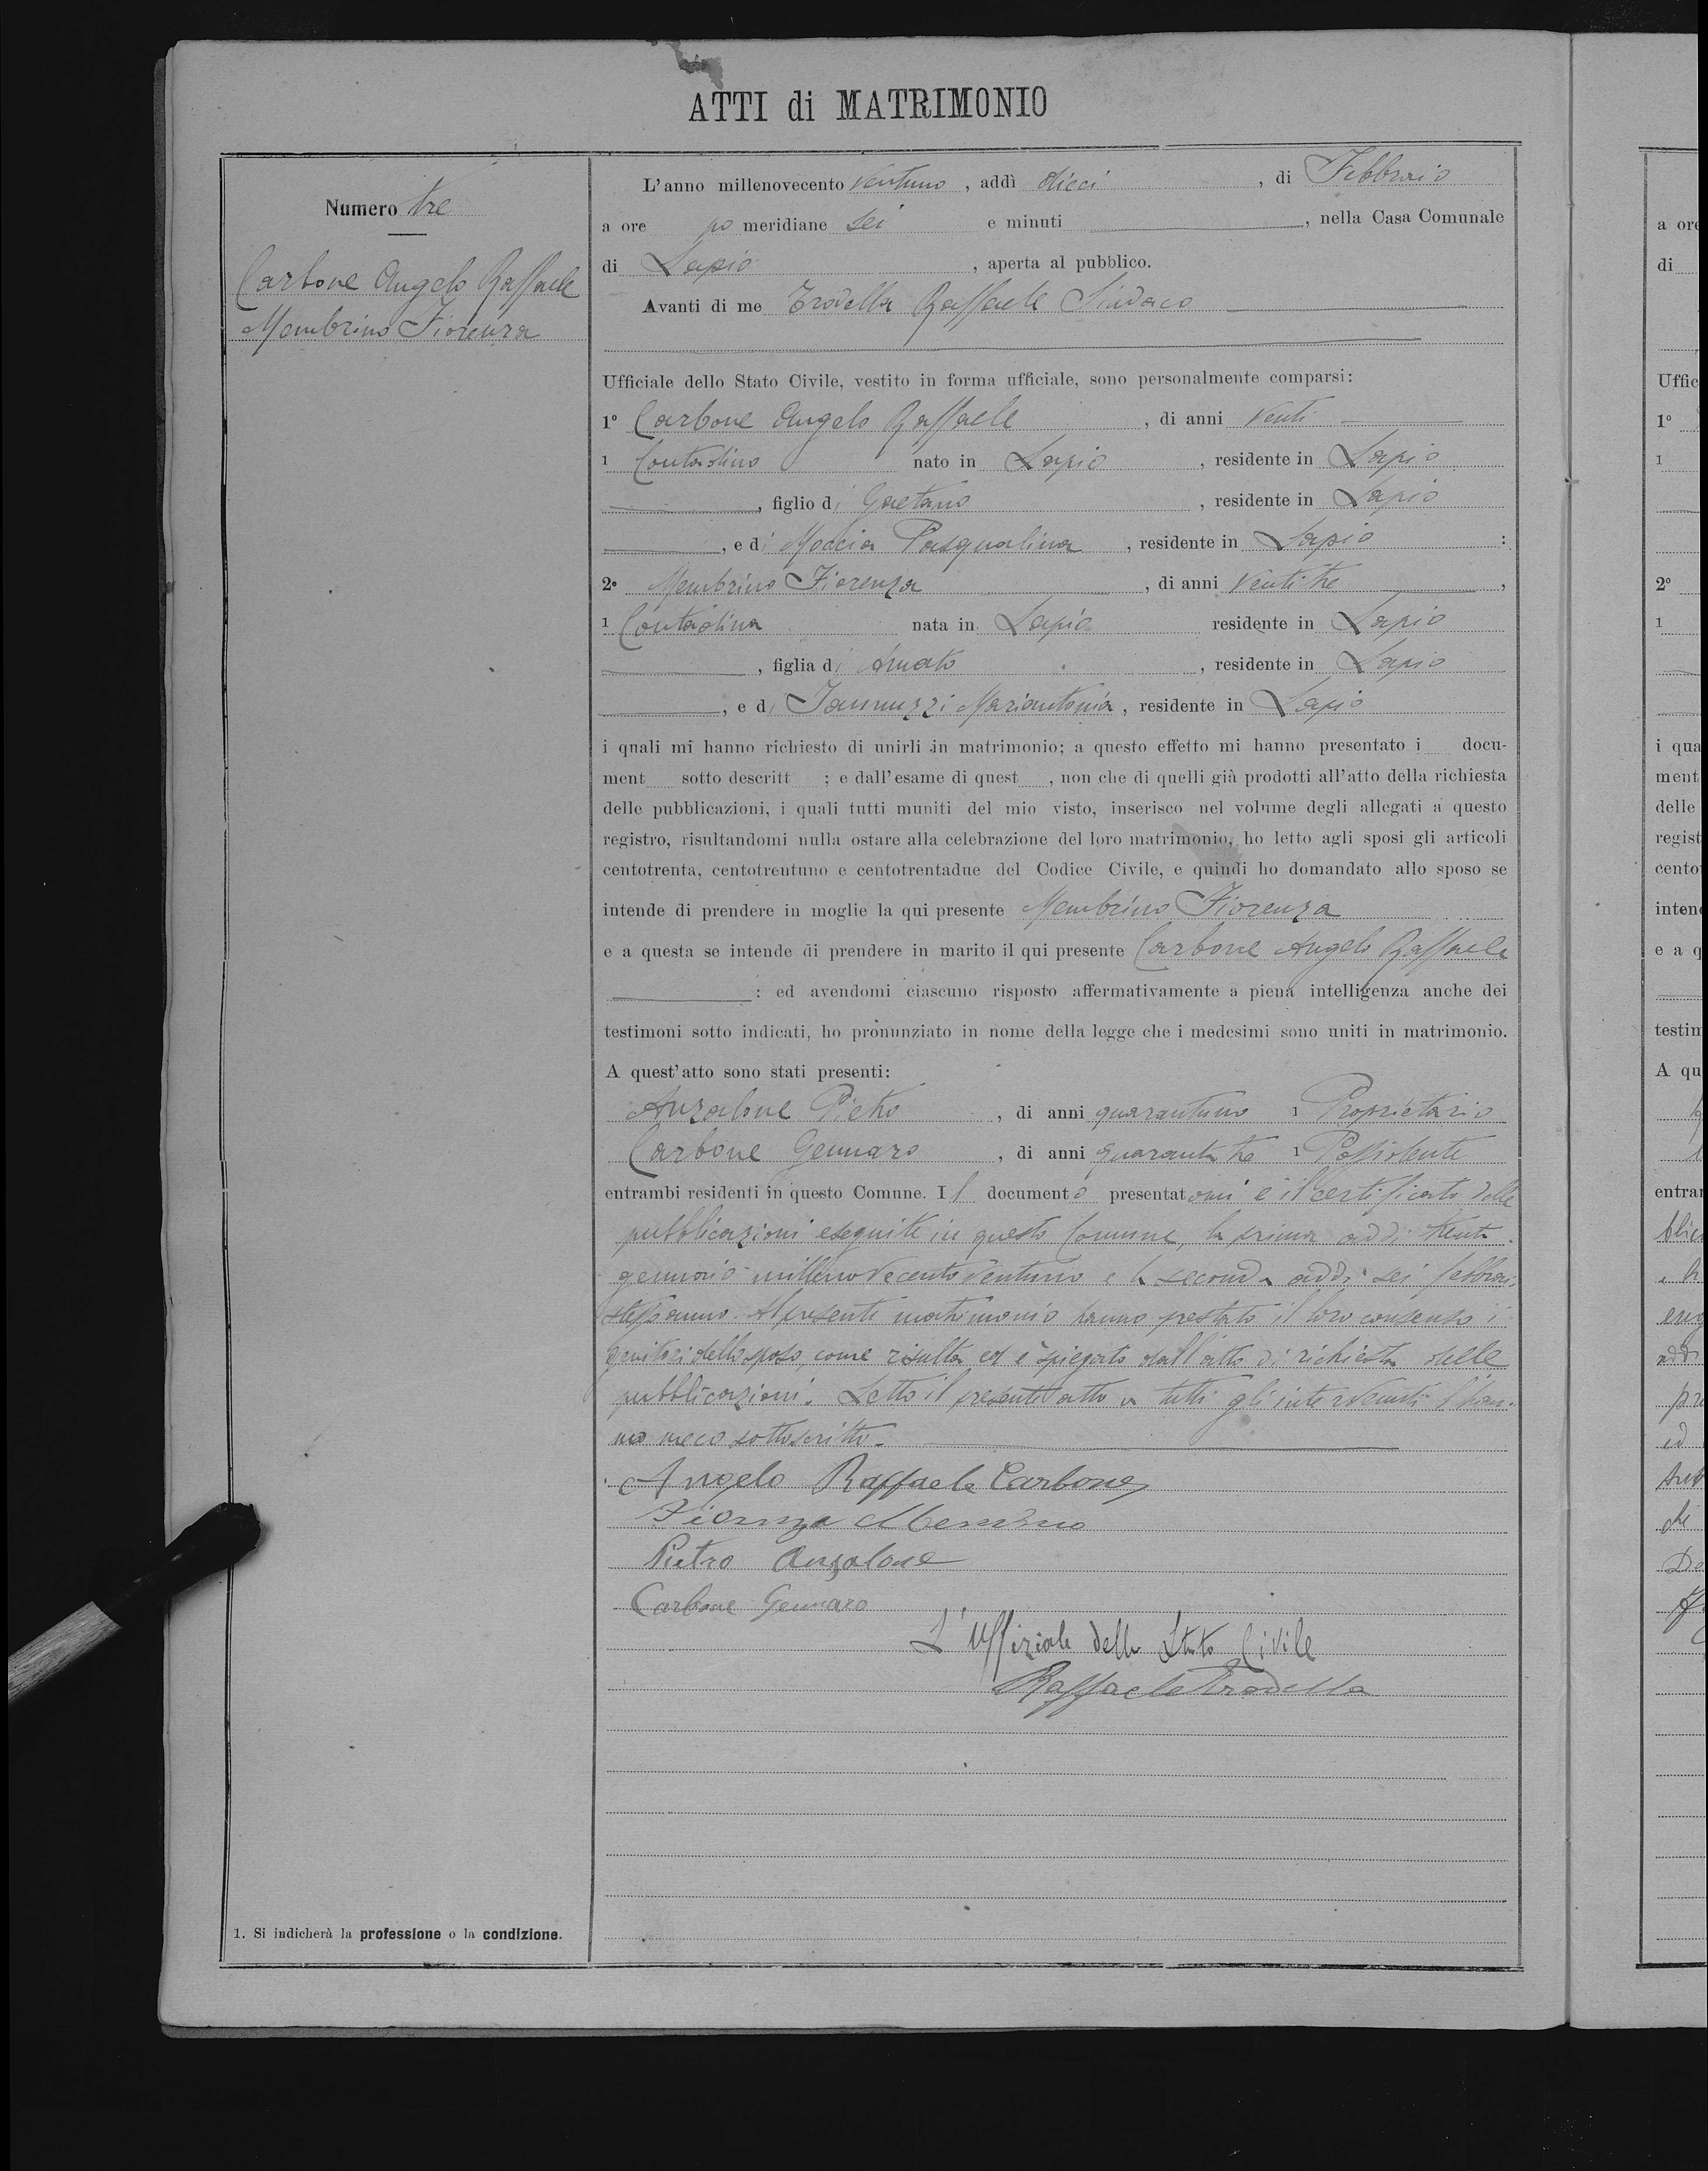 ATTI di MATRIMONIO
Numero tre
Carbone Angelo Raffaele
Membrino Fiorenza
L'anno millenovecento ventuno, addì dieci, di Febbraio
a ore po meridiane sei e minuti, nella Casa Comunale
di Lapio, aperta al pubblico.
Avanti di me Trodella Raffaele Sindaco
Ufficiale dello Stato Civile, vestito in forma ufficiale, sono personalmente comparsi:
1º Carbone Angelo Raffaele, di anni venti
1 Contadino nato in Lapio, residente in Lapio
, figlio di Gaetano, residente in Lapio
, e di Moccia Pasqualina, residente in Lapio:
2º Membrino Fiorenza, di anni ventitre,
1 Contadina nata in Lapio residente in Lapio
, figlia di Amato, residente in Lapio
, e di Iannuzzi Mariantonia, residente in Lapio
i quali mi hanno richiesto di unirli in matrimonio; a questo effetto mi hanno presentato i docu-
ment sotto descritt ; e dall'esame di quest , non che di quelli già prodotti all'atto della richiesta
delle pubblicazioni, i quali tutti muniti del mio visto, inserisco nel volume degli allegati a questo
registro, risultandomi nulla ostare alla celebrazione del loro matrimonio, ho letto agli sposi gli articoli
centotrenta, centotrentuno e centotrentadue del Codice Civile, e quindi ho domandato allo sposo se
intende di prendere in moglie la qui presente Membrino Fiorenza
e a questa se intende di prendere in marito il qui presente Carbone Angelo Raffaele
: ed avendomi ciascuno risposto affermativamente a piena intelligenza anche dei
testimoni sotto indicati, ho pronunziato in nome della legge che i medesimi sono uniti in matrimonio.
A quest'atto sono stati presenti:
Anzalone Pietro, di anni quarantuno 1 Proprietario
Carbone Gennaro, di anni quarantatre 1 Possidente
entrambi residenti in questo Comune. Il documento presentatomi è il certificato delle
pubblicazioni eseguite in questo Comune, la prima addì trenta
gennaio millenovecentoventuno e la seconda addì sei febbraio
stesso anno. Al presente matrimonio hanno prestato il loro consenso i
genitori dello sposo, come risulta ed è spiegato dall'atto di richiesta delle
pubblicazioni. Letto il presente atto a tutti gli intervenuti l'han-
no meco sottoscritto.
Angelo Raffaele Carbone
Fiorenza Membrino
Pietro Anzalone
Carbone Gennaro
L'Uffiziale dello Stato Civile
Raffaele Trodella
1. Si indicherà la professione o la condizione.
a ore
di
Uffic
1º
1
2º
1
i qua
ment
delle
regist
cento
inten
e a q
testim
A qu
entra